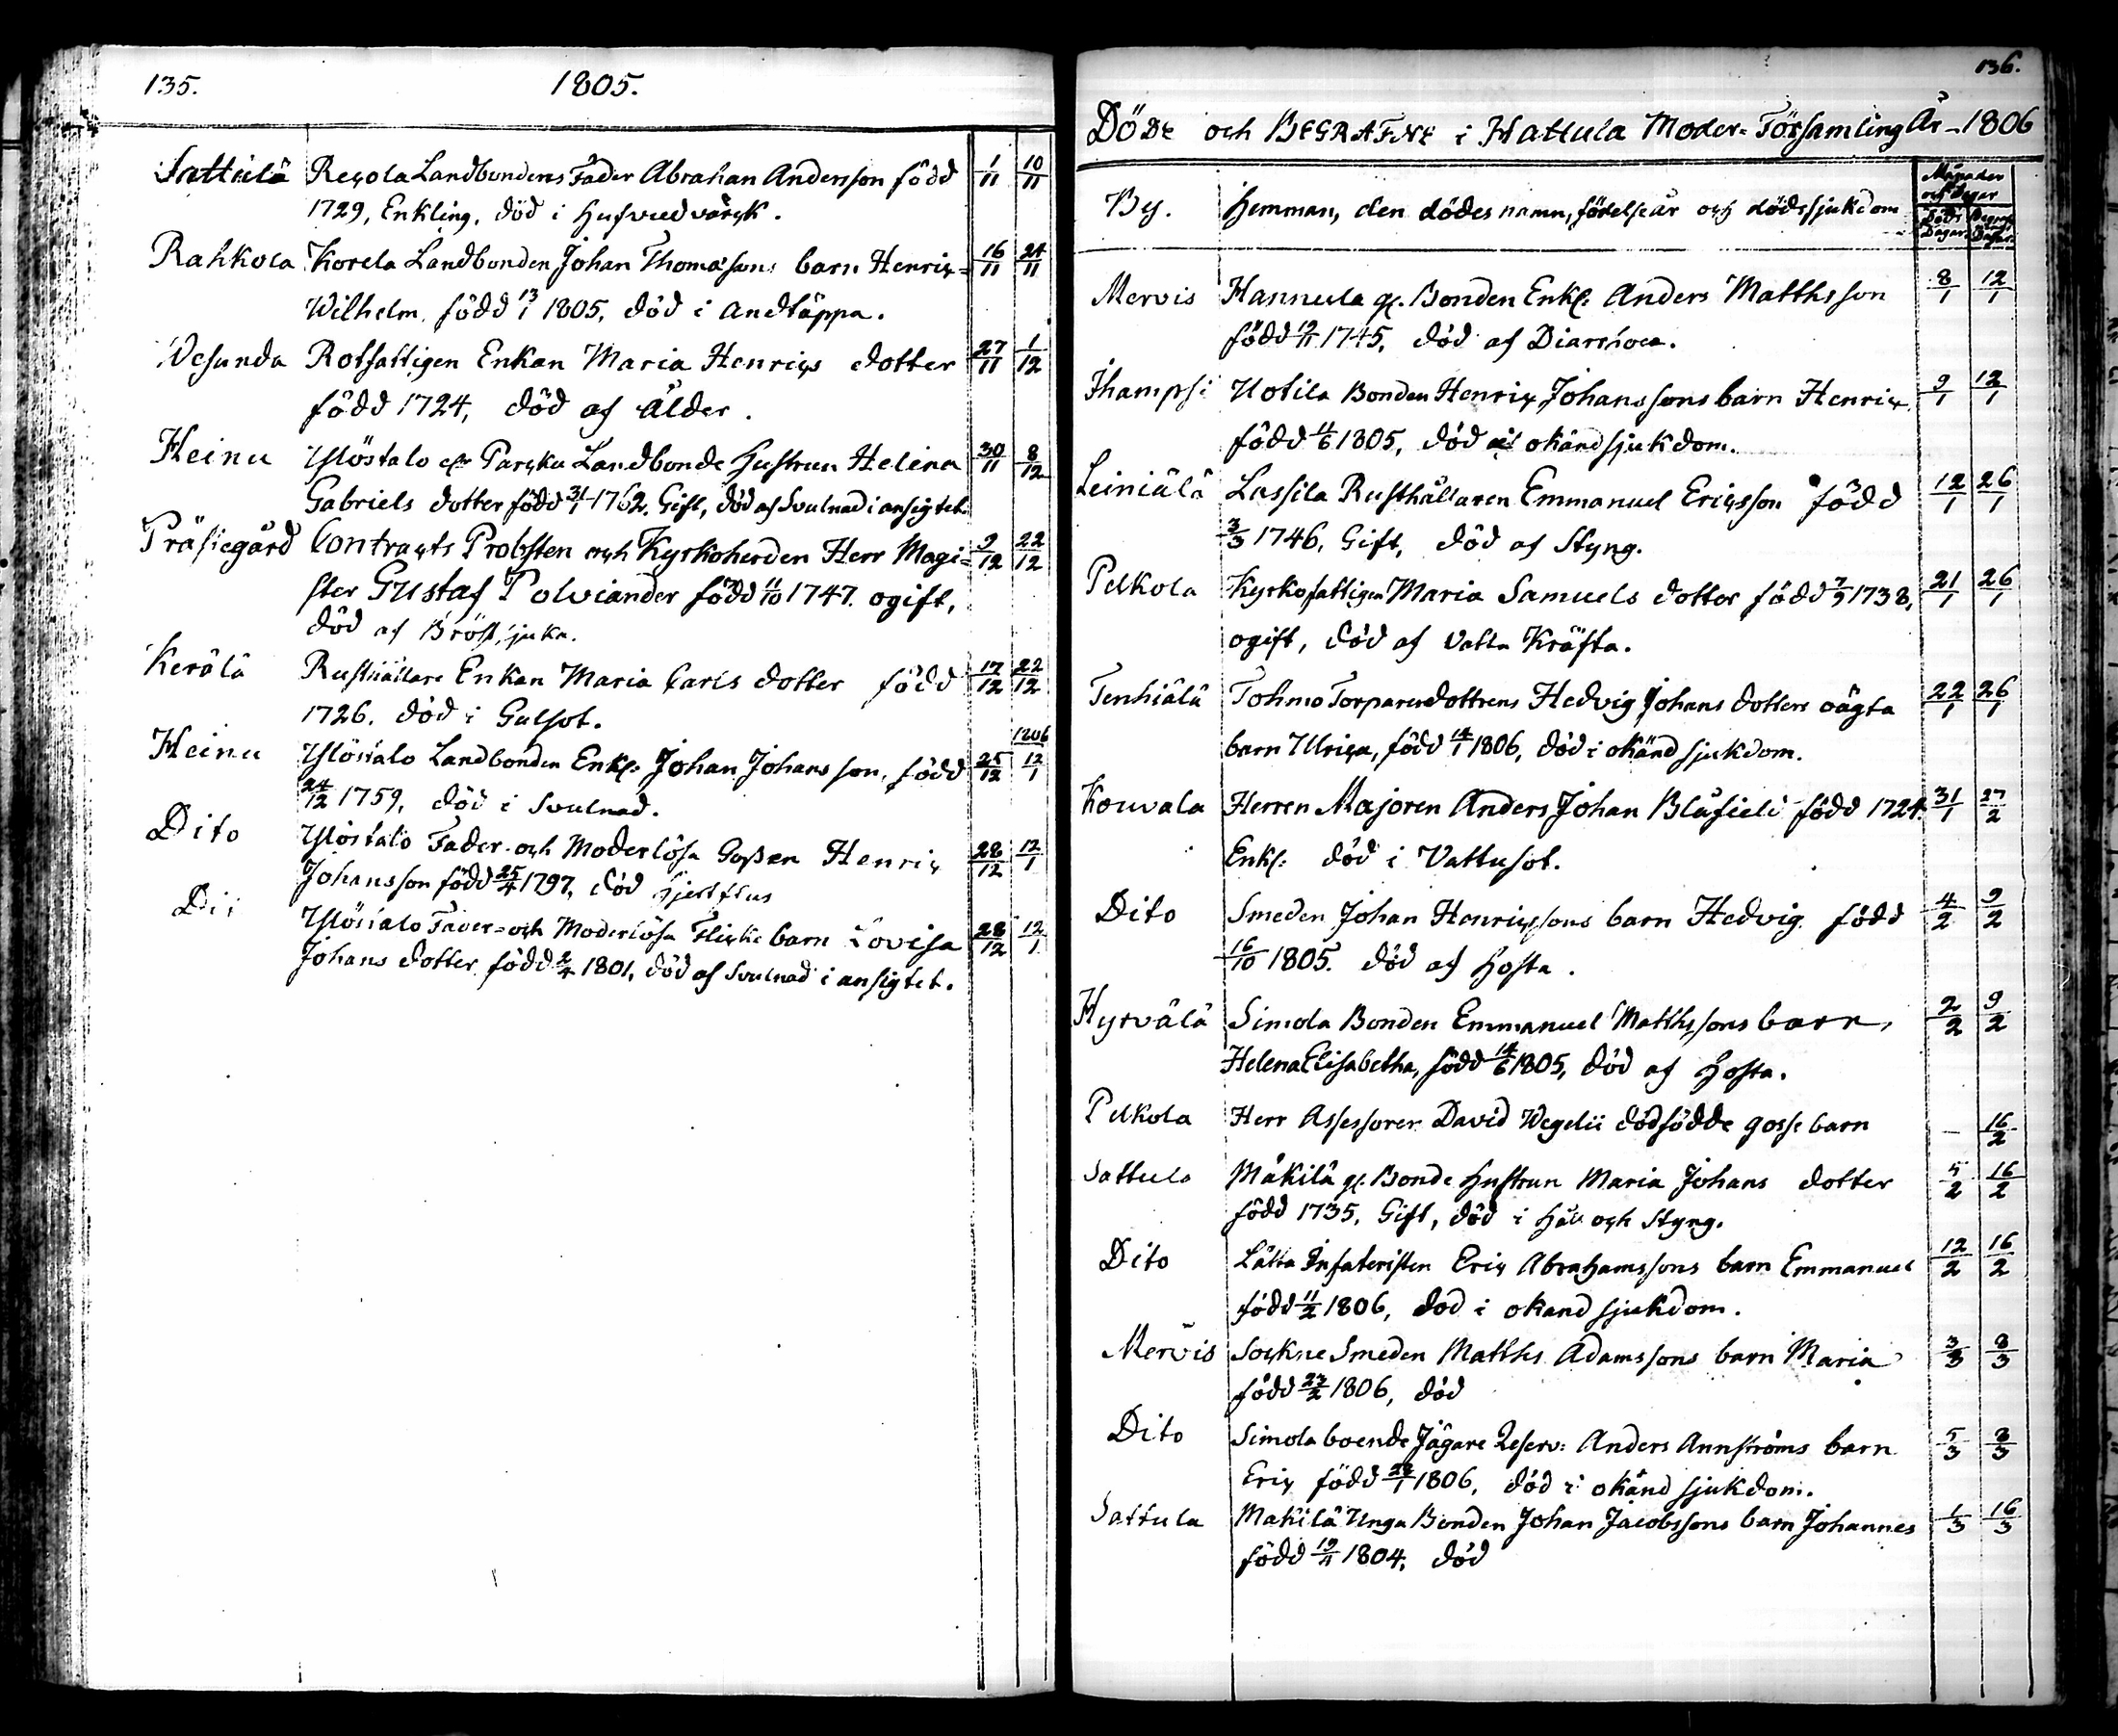 135.
1805.
Sattula Reçola Landbondens Fader Abraham Andersson född 1/11 10/11
1729, Enkling, död i hufvudvärck.
Rahkola Korela Landbonden Johan Thomæsons barn Henric= 16/11 24/11
Wilhelm, född 13/1 1805, död i andtäppa.
Wesunda Rotfattigen Enkan Maria Henrics dotter 27/11 1/12
född 1724, död af ålder.
Heinu Ylöstalo Landbonde hustrun Helena 30/11 8/12
Gabriels dotter född 31/1 1762, Gift, död af Svulnad i ansigtet.
Prästegård Contracts Probsten och Kyrkoherden Herr Magi= 9/12 22/12
ster Gustaf Polviander född 11/10 1747. ogift,
död af Bröstsjuka.
Kerälä Rusthållare Enkan Maria Carls dotter född 17/12 22/12
1726. död i Gulsot.
1806
Heinu Ylöstalo Landbonden Enkl: Johan Johansson, född 25/12 12/1
24/12 1759, död i Svulnad.
Dito Ylöstalo Fader- och Moderlösa Gossen Henric 28/12 12/1
Johansson född 25/4 1797, död
Dit Ylöstalo Fader- och Moderlösa Flicke barn Lovisa 28/12 12/1
Johans dotter född 2/4 1801, död af Svulnad i ansigtet.
136.
Döde och Begrafne i Hattula Moder-Församling År 1806
By. Hemman, den dödes namn, födelseår och dödssjukdom Månader och Dagar
Döds Dagar. Begrafn: Dagar.
Mervis Hannula gl. Bonden Enkl: Anders Matthsson 8/1 12/1
född 12/11 1745, död af Diarrhoea.
Ihampsi Uotila Bonden Henric Johanssons barn Henric 9/1 12/1
född 11/6 1805, död af okänd sjukdom.
Leiniälä Lassila Rusthållaren Emmanuel Ericsson född 12/1 26/1
3/3 1746, Gift, död af Styng.
Pelkola Kyrkofattigen Maria Samuels dotter född 7/9 1738, 21/1 26/1
ogift, död af Vattu Kräfta.
Tenhiälä Tohmo Torparedottrens Hedvig Johans dotters oägta 22/1 26/1
barn Ulrica, född 14/1 1806, död i okänd sjukdom.
Kouvala Herren Majoren Anders Johan Blåfield född 1724. 31/1 27/2
Enkl: död i Vattusot.
Dito Smeden Johan Henricssons barn Hedvig född 4/2 9/2
16/10 1805. död af hosta.
Hyrvälä Simola Bonden Emmanuel Matthssons barn, 2/2 9/2
Helena Elisabetha, född 14/6 1805, död af hosta.
Pelkola Herr Assessoren David Wegelii dödfödde gosse barn — 16/2
Sattula Mäkilä gl. Bonde hustrun Maria Johans dotter 5/2 16/2
född 1735, Gift, död i håll och Styng.
Dito Lätta Infateristen Eric Abrahamssons barn Emmanuel 12/2 16/2
född 11/2 1806, död i okand sjukdom.
Mervis Sockne Smeden Matths Adamssons barn Maria 3/3 8/3
född 23/2 1806, död
Dito Simola boende Jägare Reserv: Anders Annströms barn 5/3 8/3
Eric född 28/1 1806, död i okänd sjukdom.
Sattula Mäkilä Unga Bonden Johan Jacobssons barn Johannes 1/3 16/3
född 19/11 1804, död